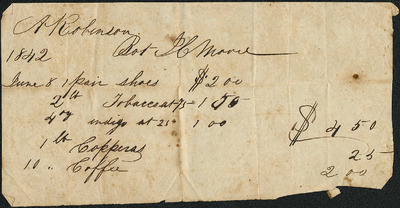 A Robinson
1842 Bot H Moore
June 8 1 pair shoes $2 00
2 lb Tobacco at 75 1 50
4 oz indigo at 25 1 00
$ 4 50
1 lb Copperas 25
10 " Coffee 2 00